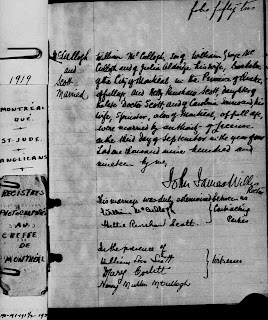 folio fifty two
McCullogh
and
Scott
Married
1919
MONTREAL
QUE
ST-JUDE
ANGLICANS
REGISTRES
PHOTOGRAPHIES
AU
GREFFE
DE
MONTREAL
William McCullogh, son of William George Mc
Cullogh and of his wife,
of the City of Montreal in the Province of Quebec
of full age and Hetty Renshaw Scott, daughter of
William Scott, and of Caroline his
wife, Spinster, also of Montreal, of full age,
were married by authority of License
on this third day of September in the year of our
Lord one thousand nine hundred and
nineteen by me,
John James Willis
Rector
This marriage was duly solemnized between us
William McCullogh
Hettie Renshaw Scott.
Contracting
Parties
In the presence of
William Scott
Mary Corbett
Mullin McCullogh
Witnesses